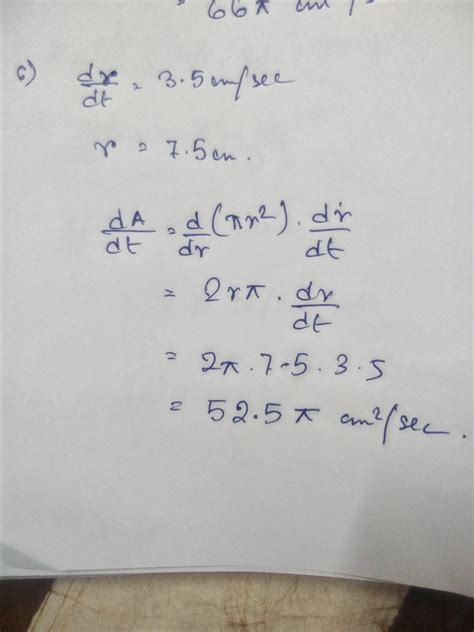 66π cm
6) dr/dt = 3.5 cm/sec
r = 7.5 cm.
dA/dt = d/dr (πr²) · dr/dt
= 2rπ · dr/dt
= 2π · 7.5 · 3.5
= 52.5 π cm²/sec.